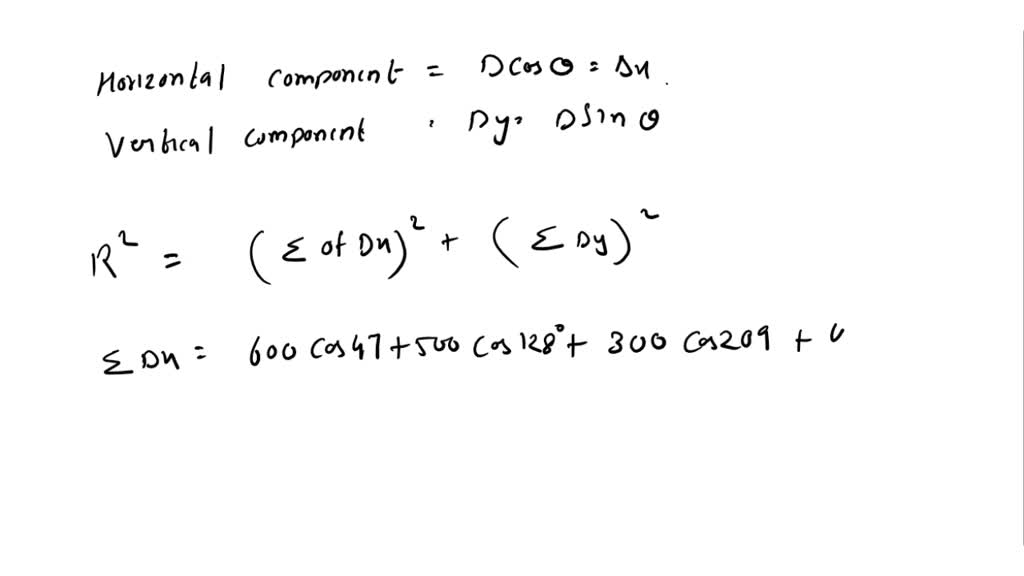 Horizontal component = D cos θ = Dx.
Vertical component . Dy = D sin θ
R² = (Σ of Dx)² + (Σ Dy)²
Σ Dx = 600 cos 47 + 500 cos 128° + 300 cos 209 +